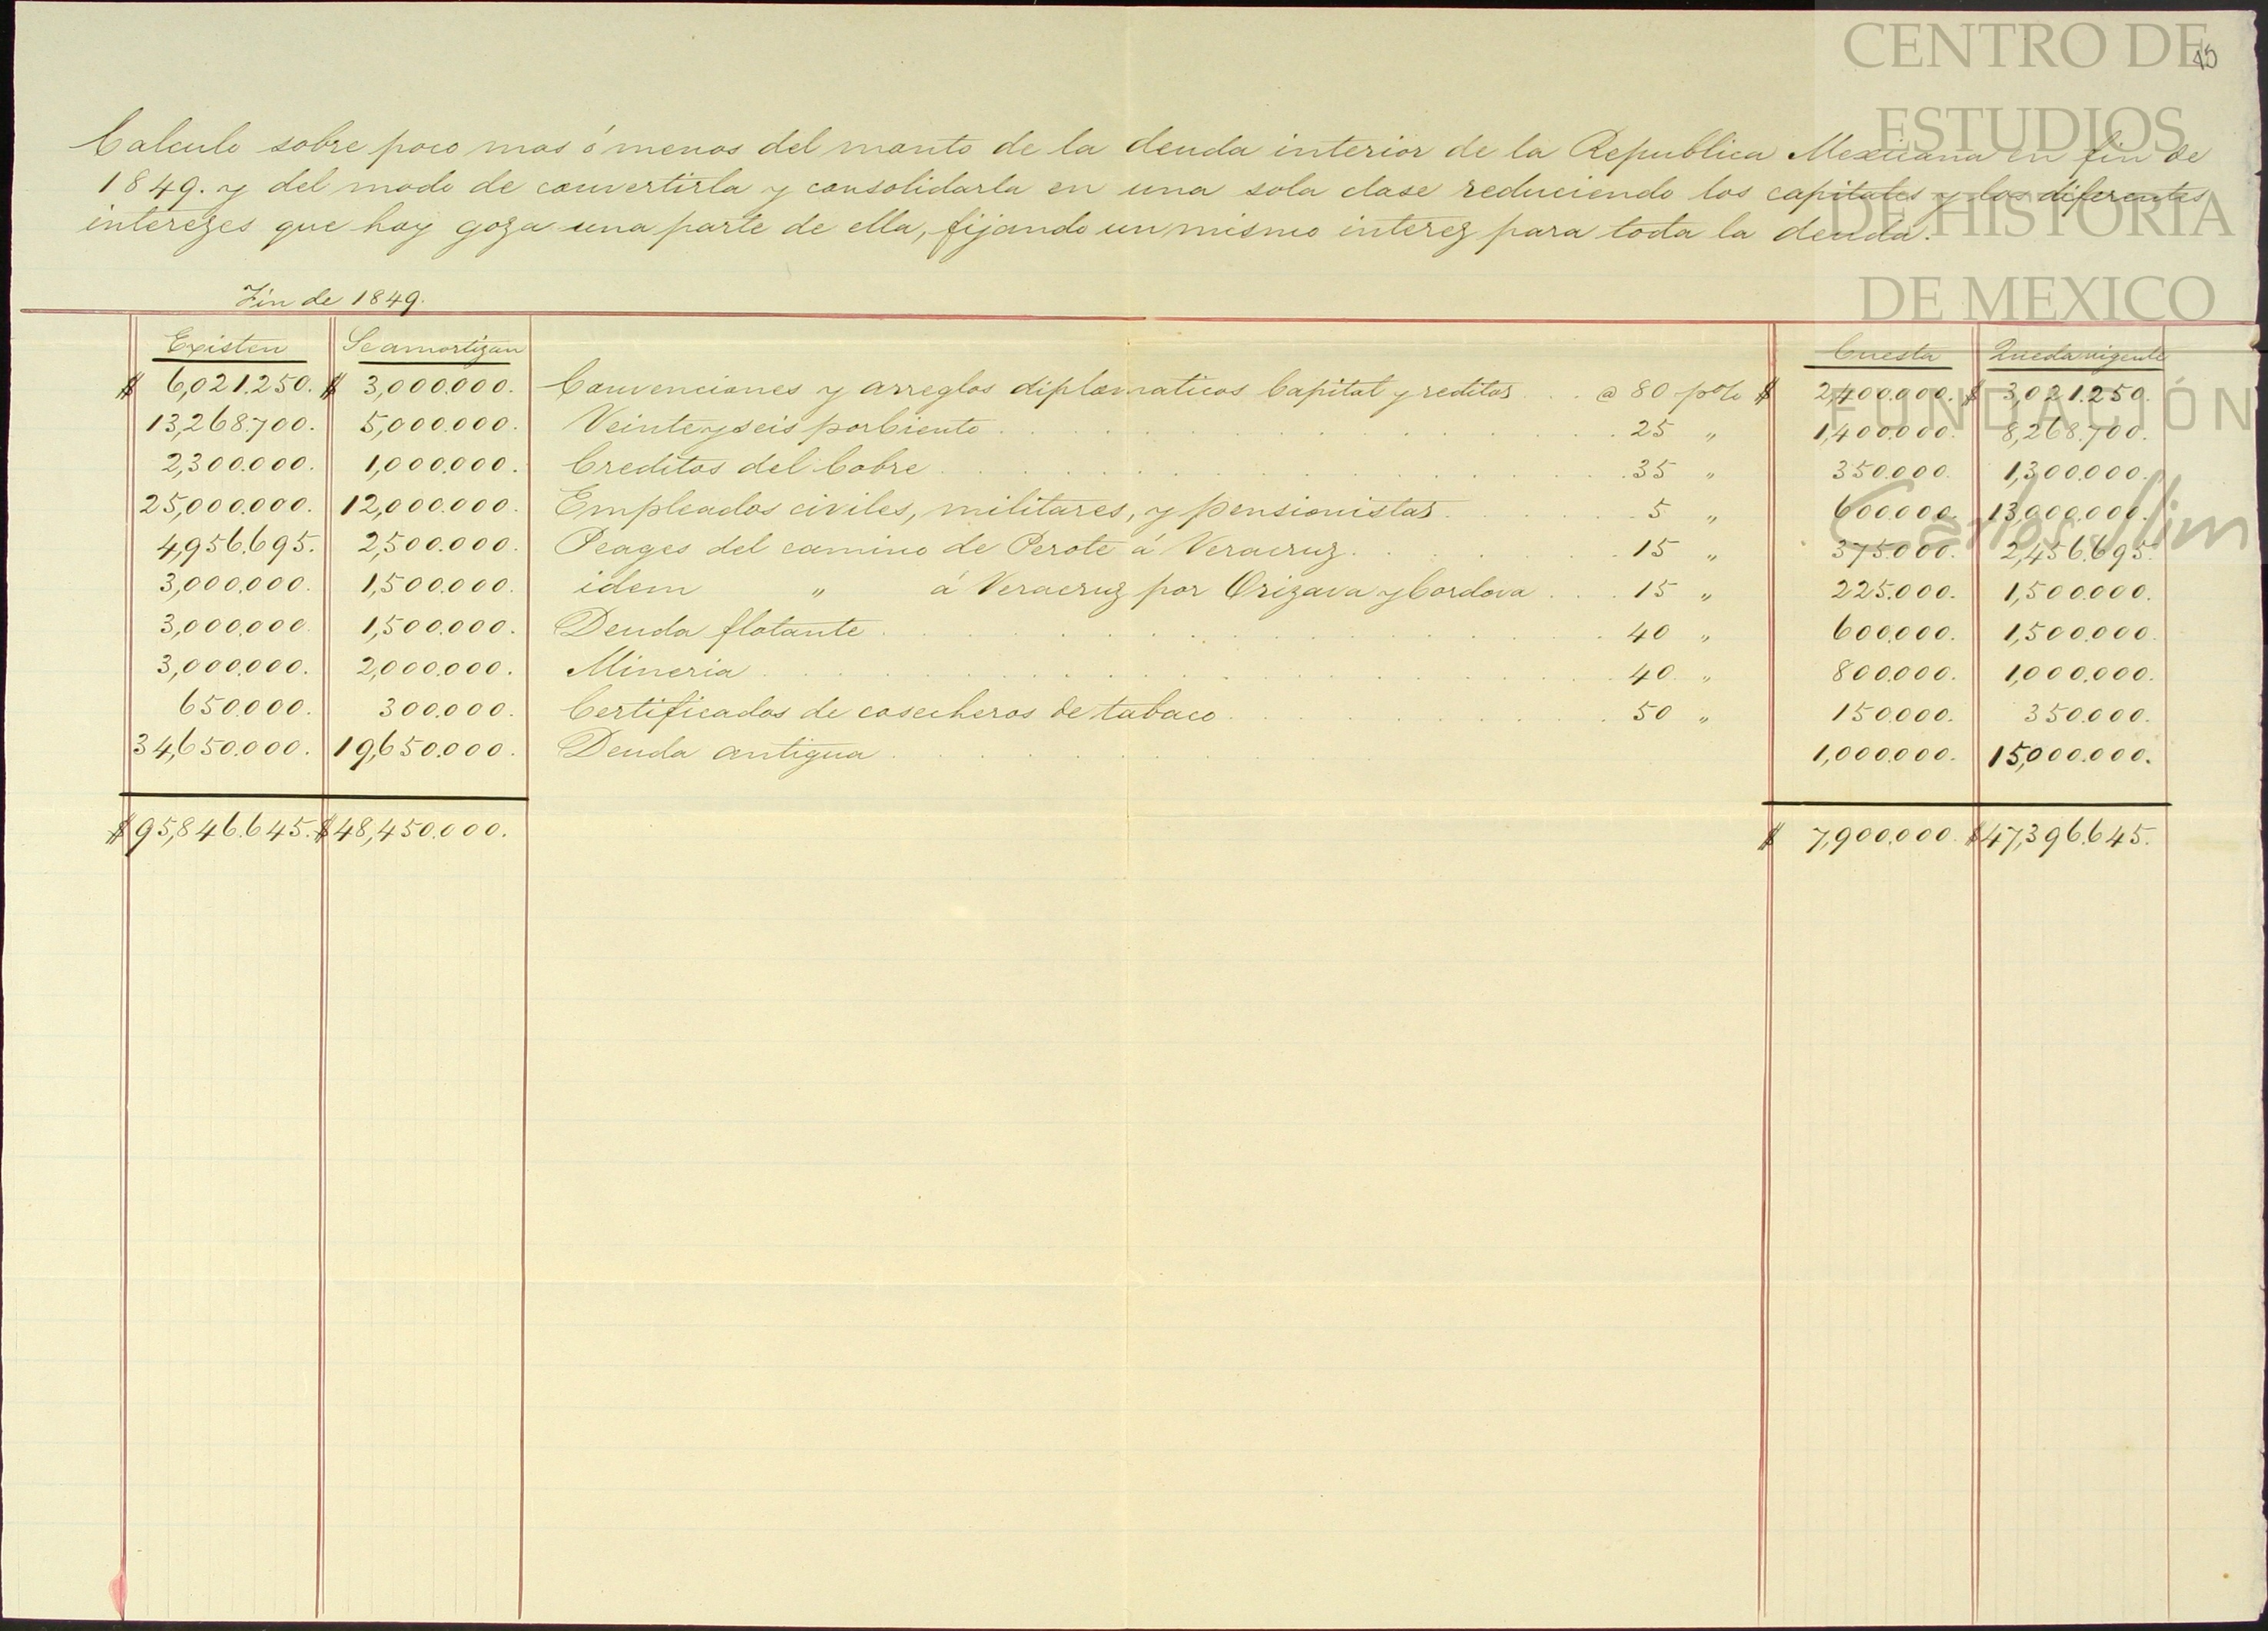 CENTRO DE
15
ESTUDIOS
DE HISTORIA
DE MEXICO
FUNDACIÓN
Carlos Slim
Calculo sobre poco mas ó menos del monto de la deuda interior de la Republica Mexicana en fin de
1849. y del modo de convertirla y consolidarla en una sola clase reduciendo los capitales y los diferentes
interezes que hoy goza una parte de ella, fijando un mismo interez para toda la deuda.
Fin de 1849.
Existen Se amortizan Cuesta Queda vigente
$ 6,021.250. $ 3,000.000. Convenciones y arreglos diplomaticos Capital y reditos . . . @ 80 p% $ 2,400.000. $ 3,021.250.
13,268.700. 5,000.000. Veinte y seis por Ciento . . . 25 " 1,400.000. 8,268.700.
2,300.000. 1,000.000. Creditos del Cobre . . . 35 " 350.000. 1,300.000.
25,000.000. 12,000.000. Empleados civiles, militares, y pensionistas . . . 5 " 600.000. 13,000.000.
4,956.695. 2,500.000. Peages del camino de Perote á Veracruz . . . 15 " 375.000. 2,456.695.
3,000.000. 1,500.000. idem " á Veracruz por Orizava y Cordova . . . 15 " 225.000. 1,500.000.
3,000.000. 1,500.000. Deuda flotante . . . 40 " 600.000. 1,500.000.
3,000.000. 2,000.000. Mineria . . . 40 " 800.000. 1,000.000.
650.000. 300.000. Certificados de cosecheros de tabaco . . . 50 " 150.000. 350.000.
34,650.000. 19,650.000. Deuda antigua . . . 1,000.000. 15,000.000.
$ 95,846.645. $ 48,450.000. $ 7,900.000. $ 47,396.645.